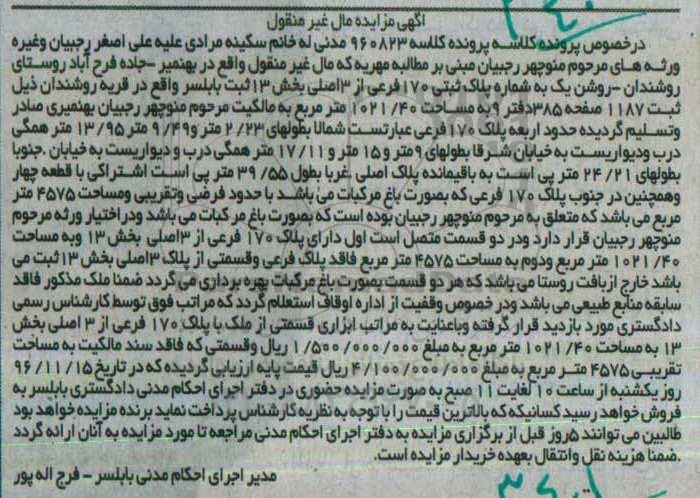 آگهی مزایده مال غیر منقول
درخصوص پرونده کلاسه پرونده کلاسه ۹۶۰۸۲۳ مدنی له خانم سکینه مرادی علیه علی اصغر رجبیان وغیره
ورثه های مرحوم منوچهر رجبیان مبنی بر مطالبه مهریه که مال غیر منقول واقع در بهنمیر -جاده فرح آباد روستای
روشندان -روشن یک به شماره پلاک ثبتی ۱۷۰فرعی از ۳اصلی بخش ۱۳ ثبت بابلسر واقع در قریه روشندان ذیل
ثبت ۱۱۸۷ صفحه ۳۸۵دفتر ۹ به مساحت ۱۰۲۱/۴۰ متر مربع به مالکیت مرحوم منوچهر رجبیان بهنمیری صادر
وتسلیم گردیده حدود اربعه پلاک ۱۷۰فرعی عبارتست شمالا بطولهای ۲/۲۳ متر و۹/۴۹ متر و ۱۳/۹۵ متر همگی
درب ودیواریست به خیابان شرقا بطولهای ۹ متر و ۱۵ متر و ۱۷/۱۱ متر همگی درب و دیواریست به خیابان .جنوبا
بطولهای ۲۴/۲۱ متر پی است به باقیمانده پلاک اصلی .غربا بطول ۳۹/۵۵ متر پی است اشتراکی با قطعه چهار
وهمچنین در جنوب پلاک ۱۷۰ فرعی که بصورت باغ مرکبات می باشد با حدود فرضی وتقریبی ومساحت ۴۵۷۵ متر
مربع می باشد که متعلق به مرحوم منوچهر رجبیان بوده است که بصورت باغ مرکبات می باشد ودراختیار ورثه مرحوم
منوچهر رجبیان قرار دارد ودر دو قسمت متصل است اول دارای پلاک ۱۷۰ فرعی از ۳اصلی بخش ۱۳ وبه مساحت
۱۰۲۱/۴۰ متر مربع ودوم به مساحت ۴۵۷۵ متر مربع فاقد پلاک فرعی وقسمتی از پلاک ۳اصلی بخش ۱۳ثبت می
باشد خارج ازبافت روستا می باشد که هر دو قسمت بصورت باغ مرکبات بهره برداری می گردد ضمنا ملک مذکور فاقد
سابقه منابع طبیعی می باشد ودر خصوص وقفیت از اداره اوقاف استعلام گردد که مراتب فوق توسط کارشناس رسمی
دادگستری مورد بازدید قرار گرفته وباعنایت به مراتب ابزاری قسمتی از ملک با پلاک ۱۷۰ فرعی از ۳ اصلی بخش
۱۳ به مساحت ۱۰۲۱/۴۰ متر مربع به مبلغ ۱/۵۰۰/۰۰۰/۰۰۰ ریال وقسمتی که فاقد سند مالکیت به مساحت
تقریبی ۴۵۷۵ متر مربع به مبلغ ۴/۱۰۰/۰۰۰/۰۰۰ ریال قیمت پایه ارزیابی گردیده که در تاریخ ۹۶/۱۱/۱۵
روز یکشنبه از ساعت ۱۰ لغایت ۱۱ صبح به صورت مزایده حضوری در دفتر اجرای احکام مدنی دادگستری بابلسر به
فروش خواهد رسید کسانیکه که بالاترین قیمت را با توجه به نظریه کارشناس پرداخت نماید برنده مزایده خواهد بود
طالبین می توانند ۵روز قبل از برگزاری مزایده به دفتر اجرای احکام مدنی مراجعه تا مورد مزایده به آنان ارائه گردد
.ضمنا هزینه نقل وانتقال بعهده خریدار مزایده است.
مدیر اجرای احکام مدنی بابلسر - فرج اله پور